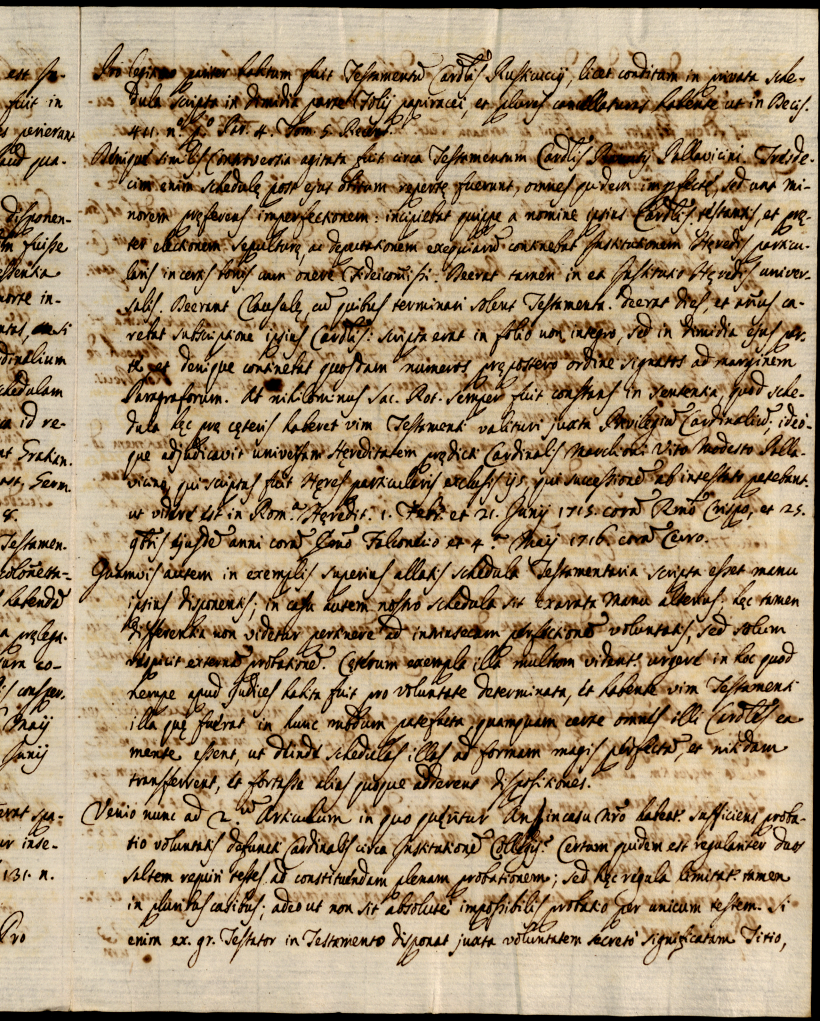 est se-
fuit in
perierunt
aud qua-
disponen-
fuisse
essentia
morte in-
dinalium
schedulam
id re-
Gratian.
Germ.
8.
Testamen.
colonetta-
habenda
prelega-
eo-
Maij
Junij
131. n.
Pro
Pro legitimo pariter habitum fuit Testamentũ Cardlis Rusticucij, licet conditum in privata sche-
dula scripta in dimidia parte folij papiracei, et plures cancellaturas habente ut in Decis.
441. n. Par. 4. Tom. 5. Recen.
Denique similis Controversia agitata fuit circa Testamentum Cardlis Pallavicini. Trede-
cim enim schedulę post ejus obitum repertę fuerunt, omnes quidem imperfectę, sed una mi-
norem pręseferens imperfectionem: incipiebat quippe a nomine ipsius Cardlis testantis, et prę-
ter electionem sepulturę, ac deputationem exequiarũ continebat Institutionem Hęredis particu-
laris in certis bonis cum onere Fideicomissi. Deerat tamen in ea Institutio Hęredis univer-
salis. Deerant Clausulę, cũ quibus terminari solent Testamenta. Deerat dies, et annus ca-
rebat subscriptione ipsius Cardlis: scripta erat in folio non integro, sed in dimidia ejus par-
te, et denique continebat quosdam numeros prępostero ordine signatos ad marginem
Paragraforum. At nihilominus Sac. Rot. semper fuit constans in sententia, quod sche-
dula hęc prę cęteris haberet vim Testamenti valituri juxta Privilegiũ Cardinaliũ, ideo-
que adjudicavit universam Hęreditatem prędicti Cardinalis Marchioni Vito Modesto Palla-
vicino, qui scriptus fuit Hęres particularis exclusis ijs, qui successionẽ ab intestato petebant.
ut videre est in Rom.ⁿᵃ Hęredit. 1. Febr. et 21. Junij 1715. corã Rmõ Crispo, et 25.
9bris ejusdẽ anni corã Emõ Falconerio et 4.ᵃ Maij 1716. corã Cerro.
Quamvis autem in exemplis superius allatis schedula Testamentaria scripta esset manu
ipsius disponentis; in casu autem nostro schedula sit exarata manu alterius; hęc tamen
differentia non videtur pertinere ad intrinsecam perfectionẽ voluntatis, sed solum
respicit externã probationẽ. Cęterum exempla illa multum vident.ʳ urgere in hoc quod
nempe apud Judices habita fuit pro voluntate determinata, et habente vim Testamenti
illa quę fuerat in hunc modum patefacta, quamquam certe omnes illi Cardles ea
mente essent, ut deinde schedulas illas ad formam magis perfectã, et nitidam
transferrent, et fortasse alias quoque adderent dispositiones.
Venio nunc ad 2.ᵘᵐ Articulum in quo quęritur An in casu nrõ habeat.ʳ sufficiens proba-
tio voluntatis defuncti Cardinalis circa Institutionẽ Collegij. Certum quidem est regulariter duos
saltem requiri testes ad constituendam plenam probationem; sed hęc regula limitat.ʳ tamen
in pluribus casibus; adeo ut non sit absolute impossibilis probatio per unicum testem. Si
enim ex. gr. Testator in Testamento disponat juxta voluntatem secreto significatam Titio,